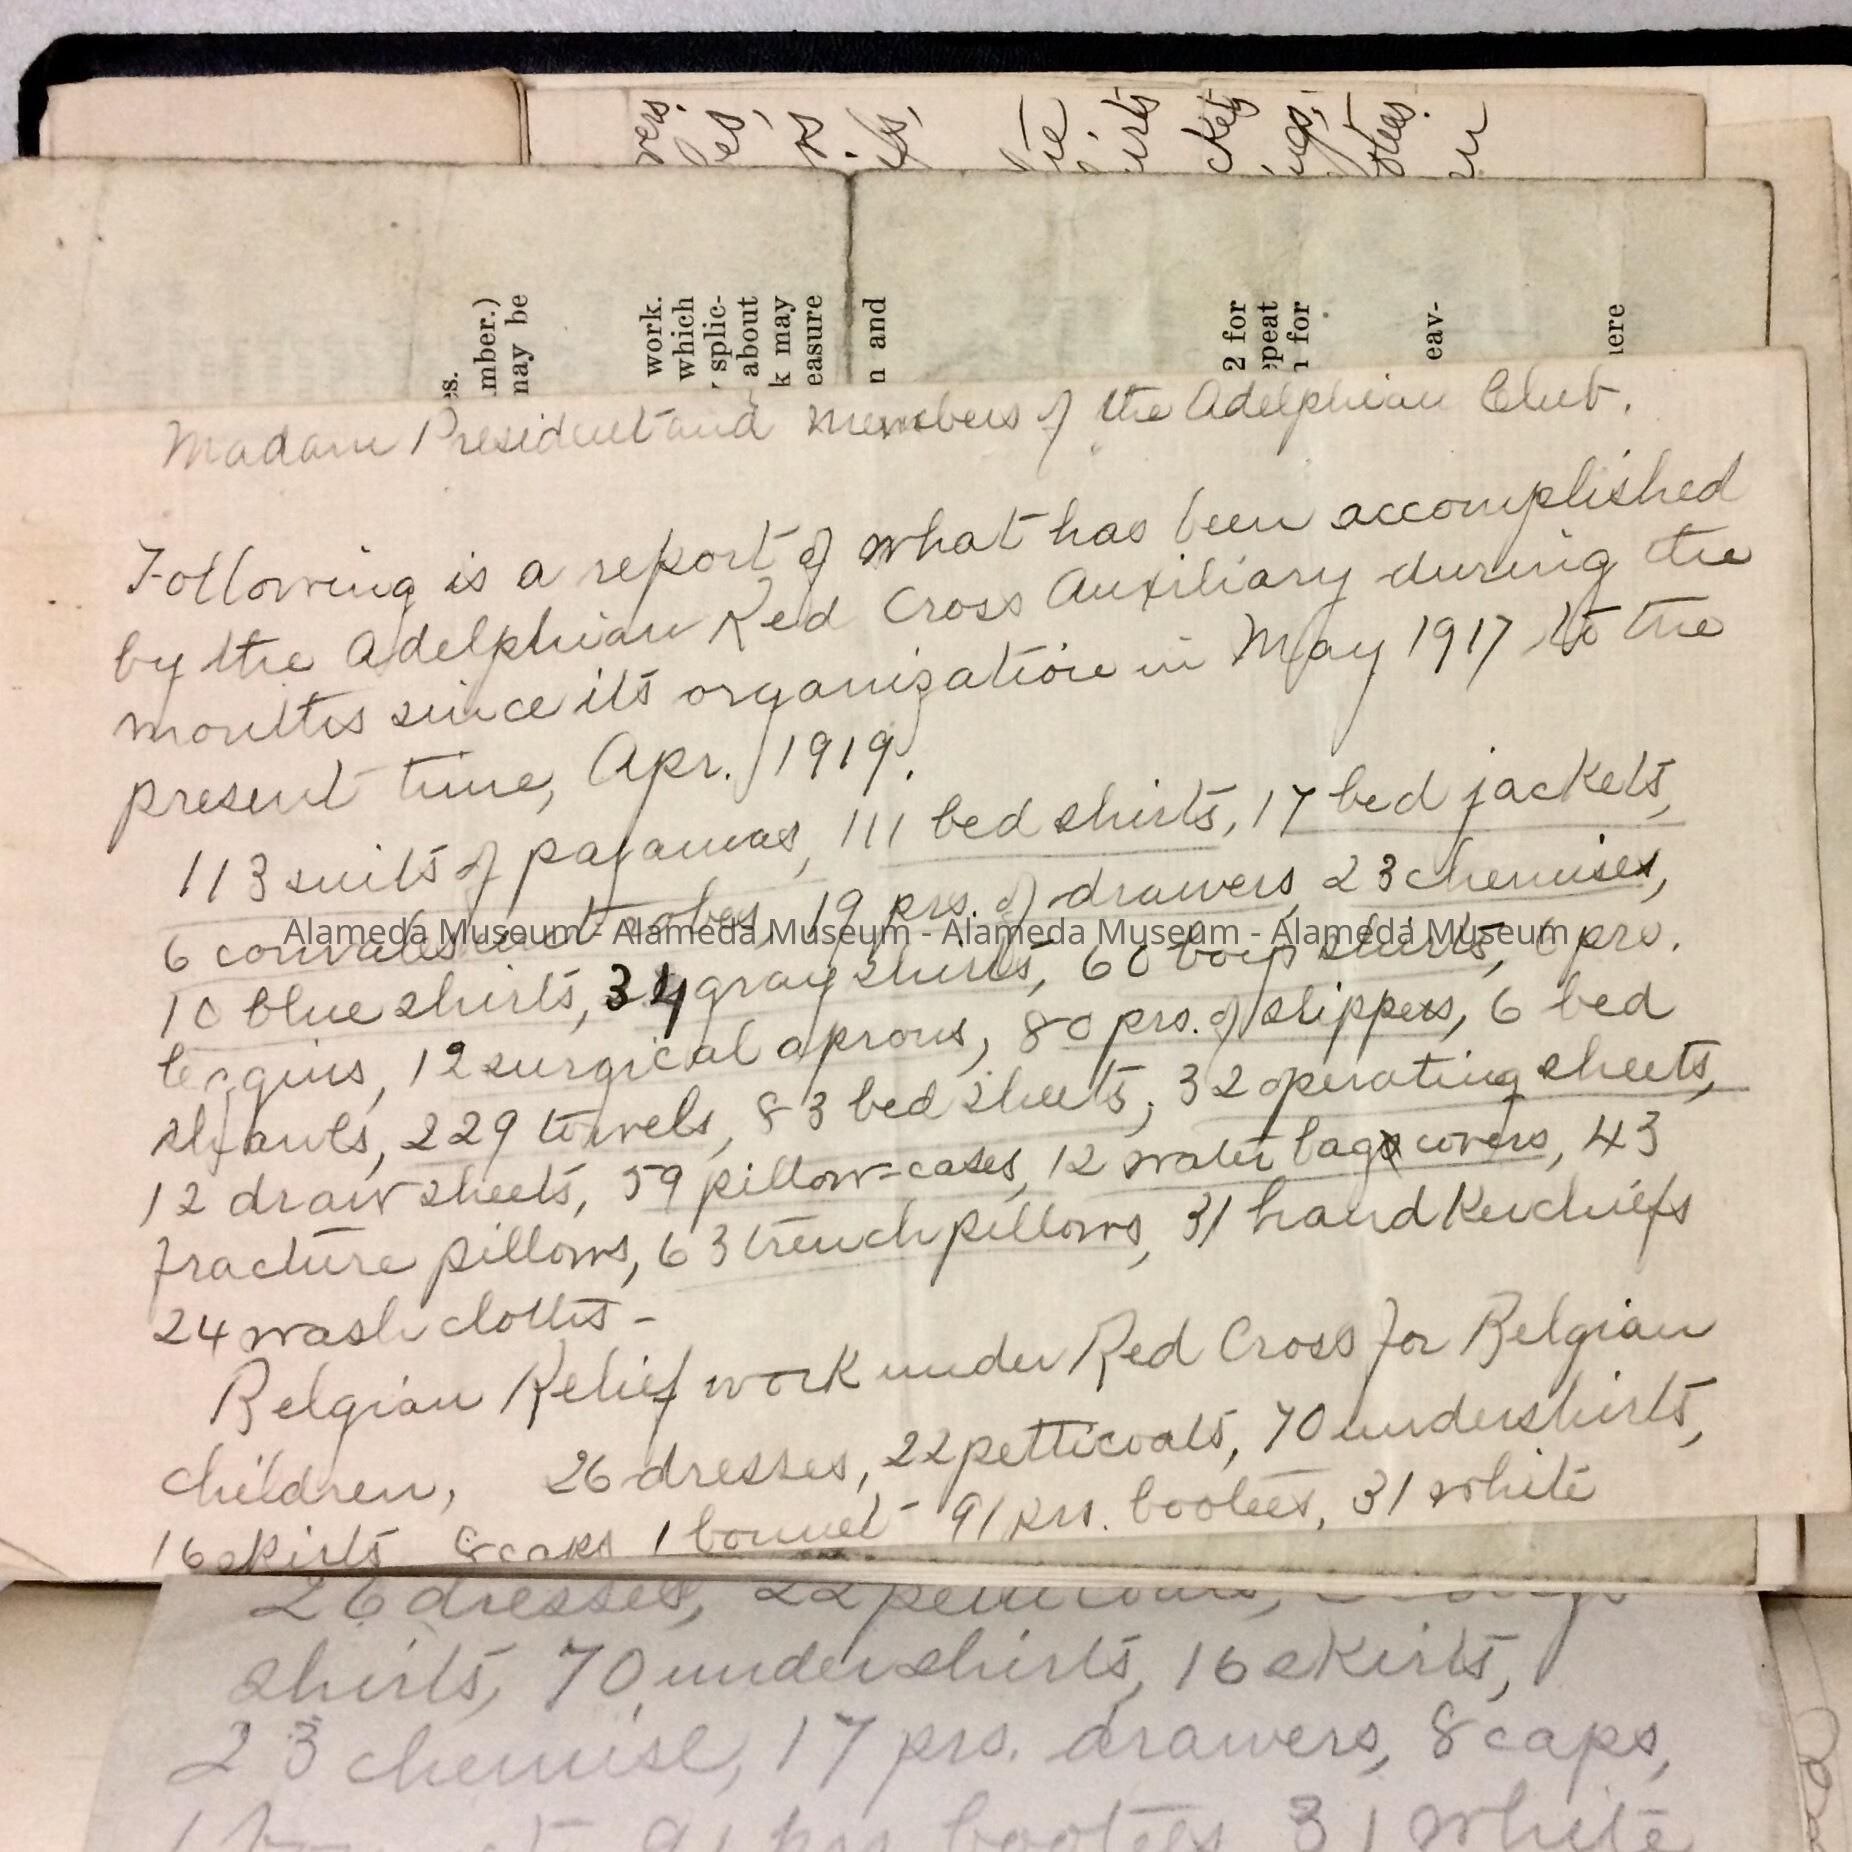 vers.
work.
which
splic-
about
k may
easure
n and
mber.)
may be
es.
2 for
epeat
n for
eav-
here
Madam President and members of the Adelphian Club.
Following is a report of what has been accomplished
by the Adelphian Red Cross Auxiliary during the
months since its organization in May 1917 to the
present time, Apr. 1919.
113 suits of pajamas, 111 bed shirts, 17 bed jackets,
6 convalescent robes, 19 prs. of drawers, 23 chemises,
Alameda Museum - Alameda Museum - Alameda Museum - Alameda Museum
10 blue shirts, 34 gray shirts, 60 boys shirts, 6 prs.
leggins, 12 surgical aprons, 80 prs. of slippers, 6 bed
shawls, 229 towels, 83 bed sheets, 32 operating sheets,
12 draw sheets, 59 pillow-cases, 12 water bag covers, 43
fracture pillows, 63 trench pillows, 31 handkerchiefs
24 wash cloths -
Belgian Relief work under Red Cross for Belgian
children, 26 dresses, 22 petticoats, 70 undershirts,
16 skirts 8 caps 1 bonnet - 91 prs. bootees, 31 white
26 dresses, 22 petticoats,
shirts, 70 undershirts, 16 skirts,
23 chemise, 17 prs. drawers, 8 caps,
91 prs bootees 31 white